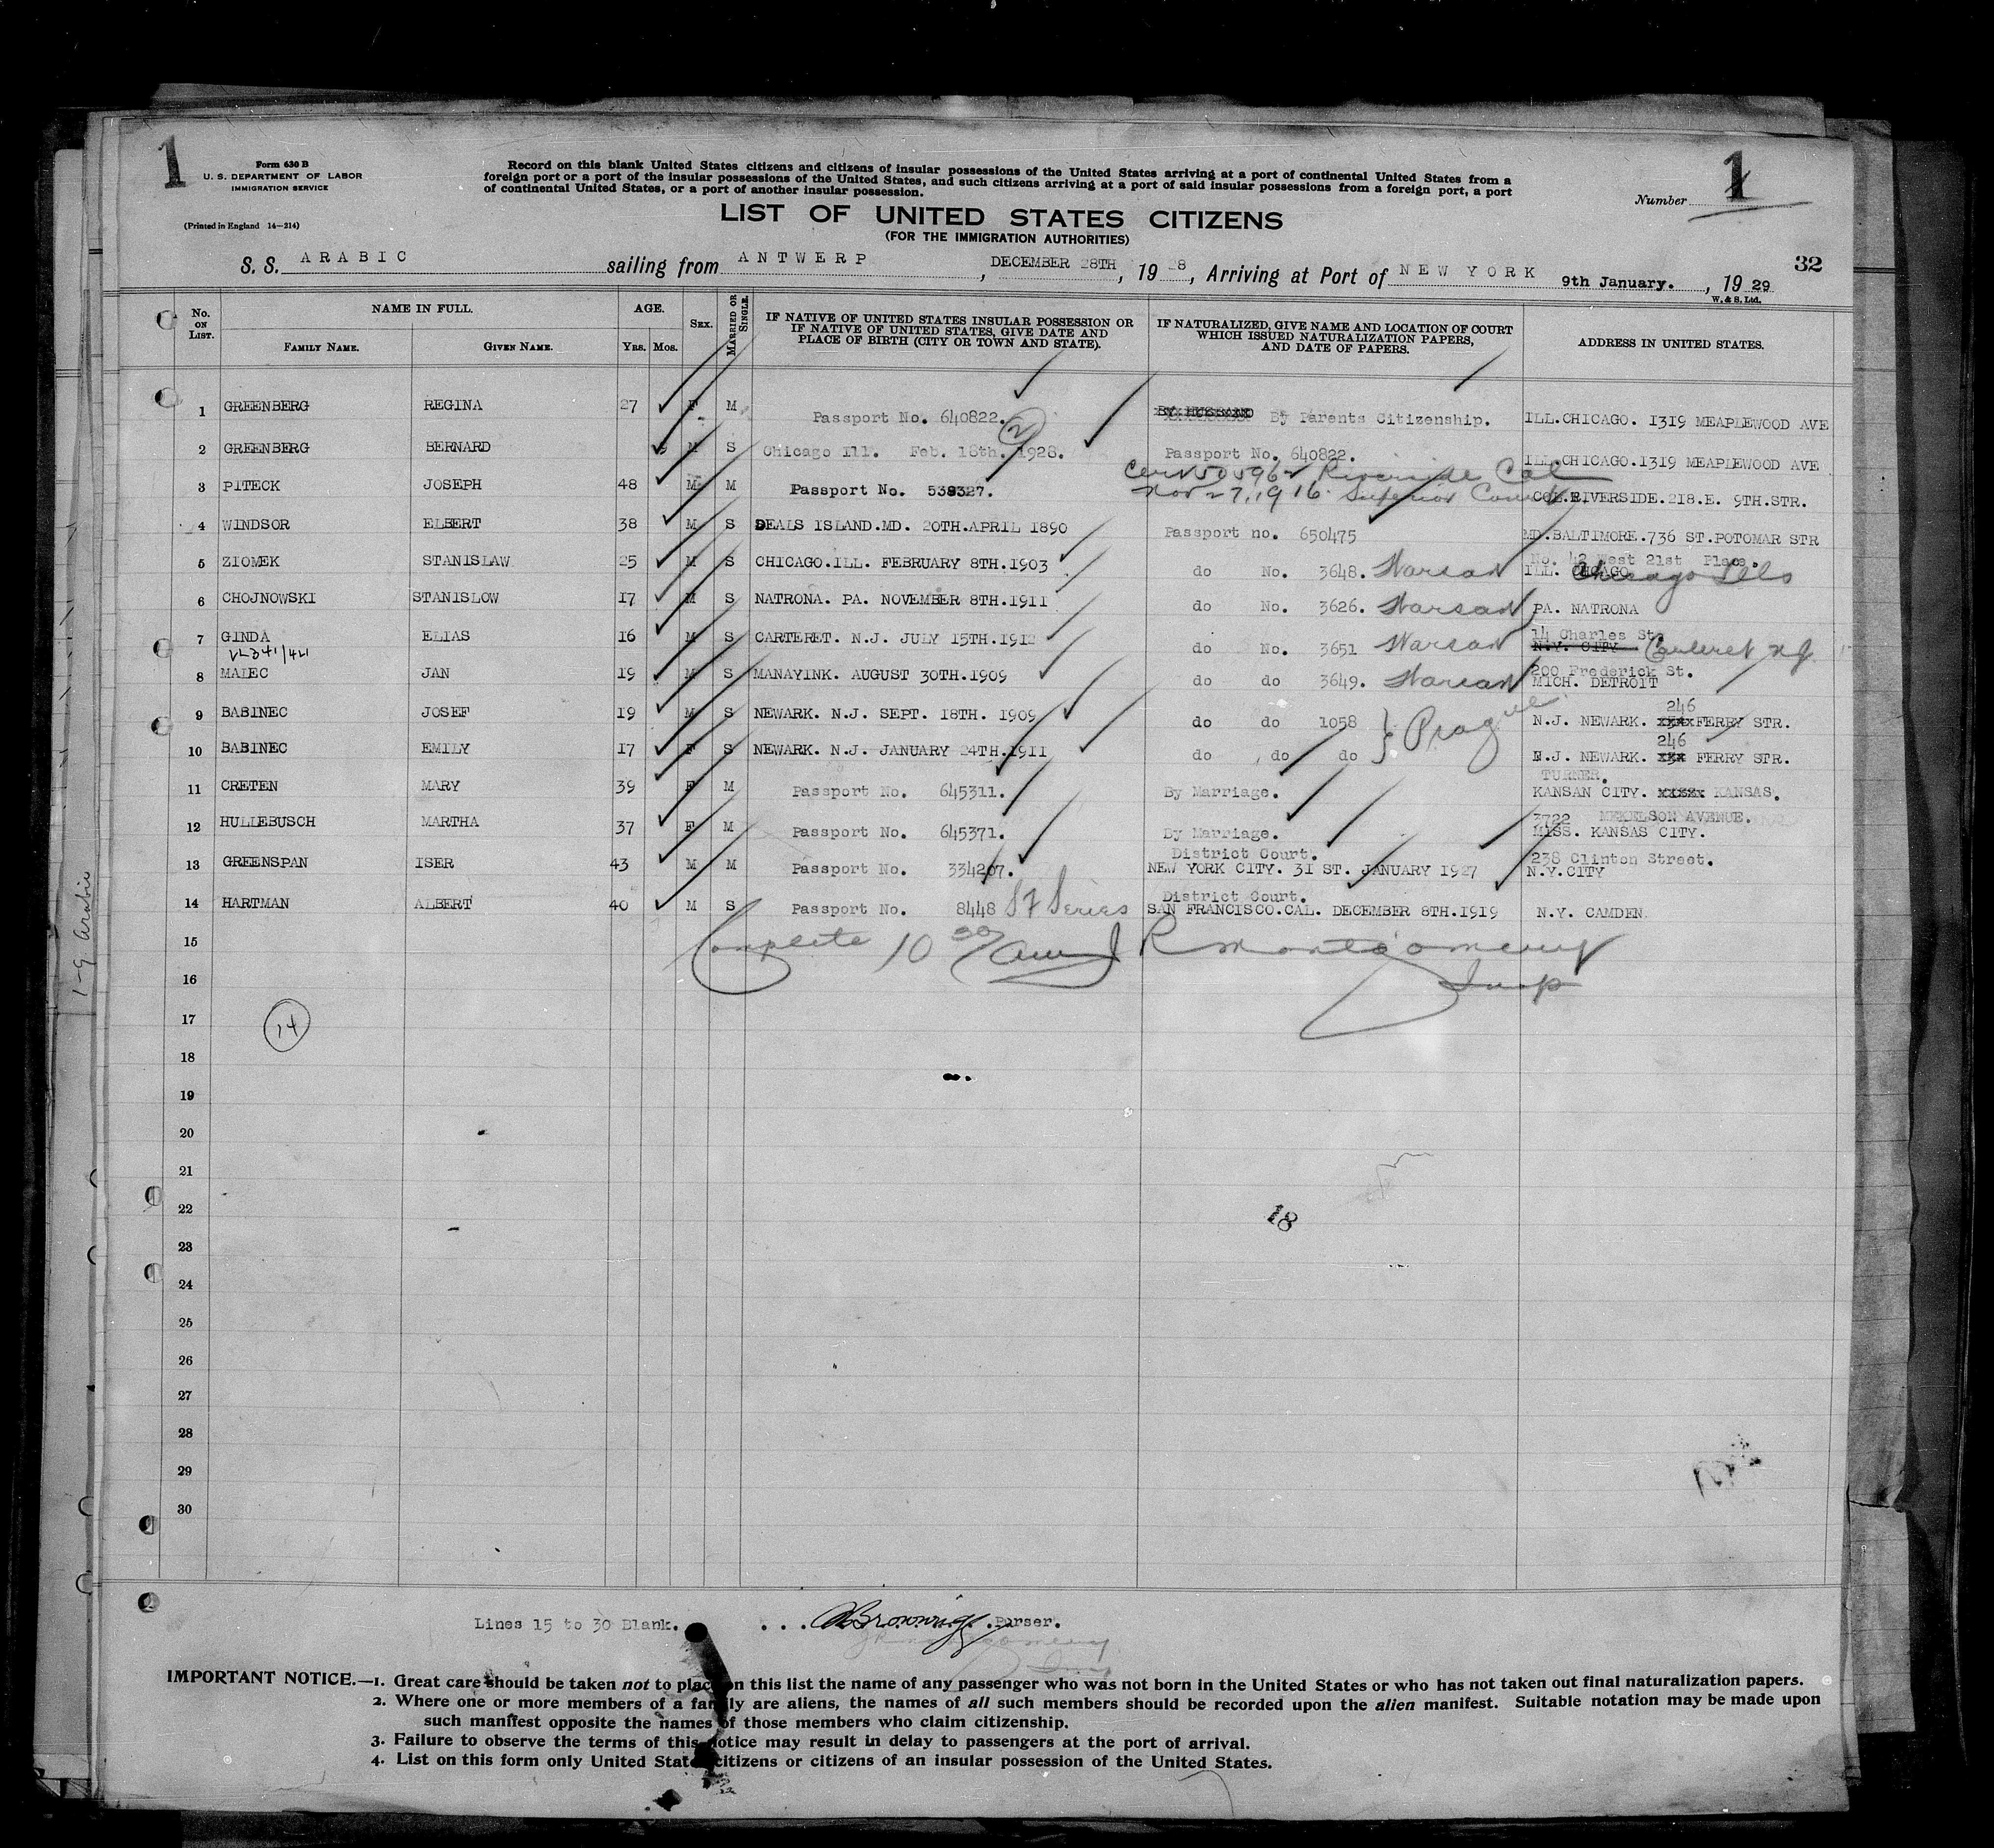 1
Form 630 B
U. S. DEPARTMENT OF LABOR
IMMIGRATION SERVICE
(Printed in England 14—214)
Record on this blank United States citizens and citizens of insular possessions of the United States arriving at a port of continental United States from a
foreign port or a port of the insular possessions of the United States, and such citizens arriving at a port of said insular possessions from a foreign port, a port
of continental United States, or a port of another insular possession.
Number 1
LIST OF UNITED STATES CITIZENS
(FOR THE IMMIGRATION AUTHORITIES)
32
S. S. ARABIC sailing from ANTWERP, DECEMBER 28TH, 19 28, Arriving at Port of NEW YORK 9th January., 19 29
W. & S. Ltd.
No. ON LIST. NAME IN FULL. FAMILY NAME. GIVEN NAME. AGE. YRS. MOS. SEX. MARRIED OR SINGLE. IF NATIVE OF UNITED STATES INSULAR POSSESSION OR IF NATIVE OF UNITED STATES, GIVE DATE AND PLACE OF BIRTH (CITY OR TOWN AND STATE). IF NATURALIZED, GIVE NAME AND LOCATION OF COURT WHICH ISSUED NATURALIZATION PAPERS, AND DATE OF PAPERS. ADDRESS IN UNITED STATES.
1 GREENBERG REGINA 27 F M Passport No. 640822. BY HUSBAND By Parents Citizenship. ILL.CHICAGO. 1319 MEAPLEWOOD AVE
2 GREENBERG BERNARD M S Chicago Ill. Feb. 18th. 1928. 2 Passport No. 640822. ILL.CHICAGO.1319 MEAPLEWOOD AVE
3 PITECK JOSEPH 48 M M Passport No. 538327. Riverside Cal Nov 27, 1916. Superior Court RIVERSIDE.218.E. 9TH.STR.
4 WINDSOR ELBERT 38 M S DEALS ISLAND.MD. 20TH.APRIL 1890 Passport no. 650475 MD.BALTIMORE.736 ST.POTOMAR STR
No. 42 West 21st Place.
5 ZIOMEK STANISLAW 25 M S CHICAGO.ILL. FEBRUARY 8TH.1903 do No. 3648. Warsaw ILL. CHICAGO Chicago Ills
6 CHOJNOWSKI STANISLOW 17 M S NATRONA. PA. NOVEMBER 8TH.1911 do No. 3626. Warsaw PA. NATRONA
14 Charles St.
7 GINDA ELIAS 16 M S CARTERET. N.J. JULY 15TH.1912 do No. 3651 Warsaw N.Y. CITY Carteret NJ
200 Frederick St.
8 MALEC JAN 19 M S MANAYINK. AUGUST 30TH.1909 do do 3649. Warsaw MICH. DETROIT
246
9 BABINEC JOSEF 19 M S NEWARK. N.J. SEPT. 18TH. 1909 do do 1058 Prague N.J. NEWARK. xxxx FERRY STR.
246
10 BABINEC EMILY 17 F S NEWARK. N.J. JANUARY 24TH.1911 do do do N.J. NEWARK. xxx FERRY STR.
TURNER.
11 CRETEN MARY 39 F M Passport No. 645311. By Marriage. KANSAN CITY. xxxxx KANSAS.
3722 MEKELSON AVENUE.
12 HULLEBUSCH MARTHA 37 F M Passport No. 645371. By Marriage. MISS. KANSAS CITY.
District Court. 238 Clinton Street.
13 GREENSPAN ISER 43 M M Passport No. 334207. NEW YORK CITY. 31 ST. JANUARY 1927 N.Y.CITY
District Court.
14 HARTMAN ALBERT 40 M S Passport No. 8448 SF Series SAN FRANCISCO.CAL. DECEMBER 8TH.1919 N.Y. CAMDEN
15 Complete 10 30 am J R Montgomery
16 Insp
17 14
18
19
20
21
22 18
23
24
25
26
27
28
29
30
1-9 Arabic
Lines 15 to 30 Blank. Purser.
IMPORTANT NOTICE.—1. Great care should be taken not to place on this list the name of any passenger who was not born in the United States or who has not taken out final naturalization papers.
2. Where one or more members of a family are aliens, the names of all such members should be recorded upon the alien manifest. Suitable notation may be made upon
such manifest opposite the names of those members who claim citizenship.
3. Failure to observe the terms of this notice may result in delay to passengers at the port of arrival.
4. List on this form only United States citizens or citizens of an insular possession of the United States.